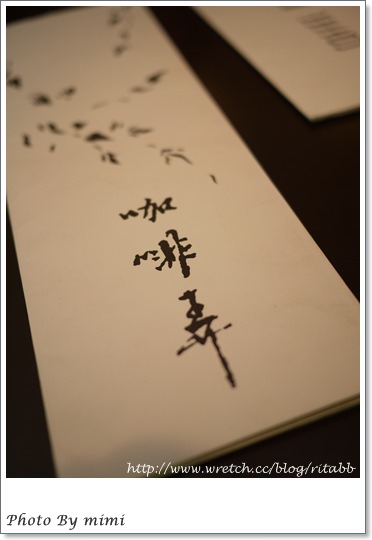 咖啡弄
http://www.wretch.cc/blog/ritabb
Photo By mimi